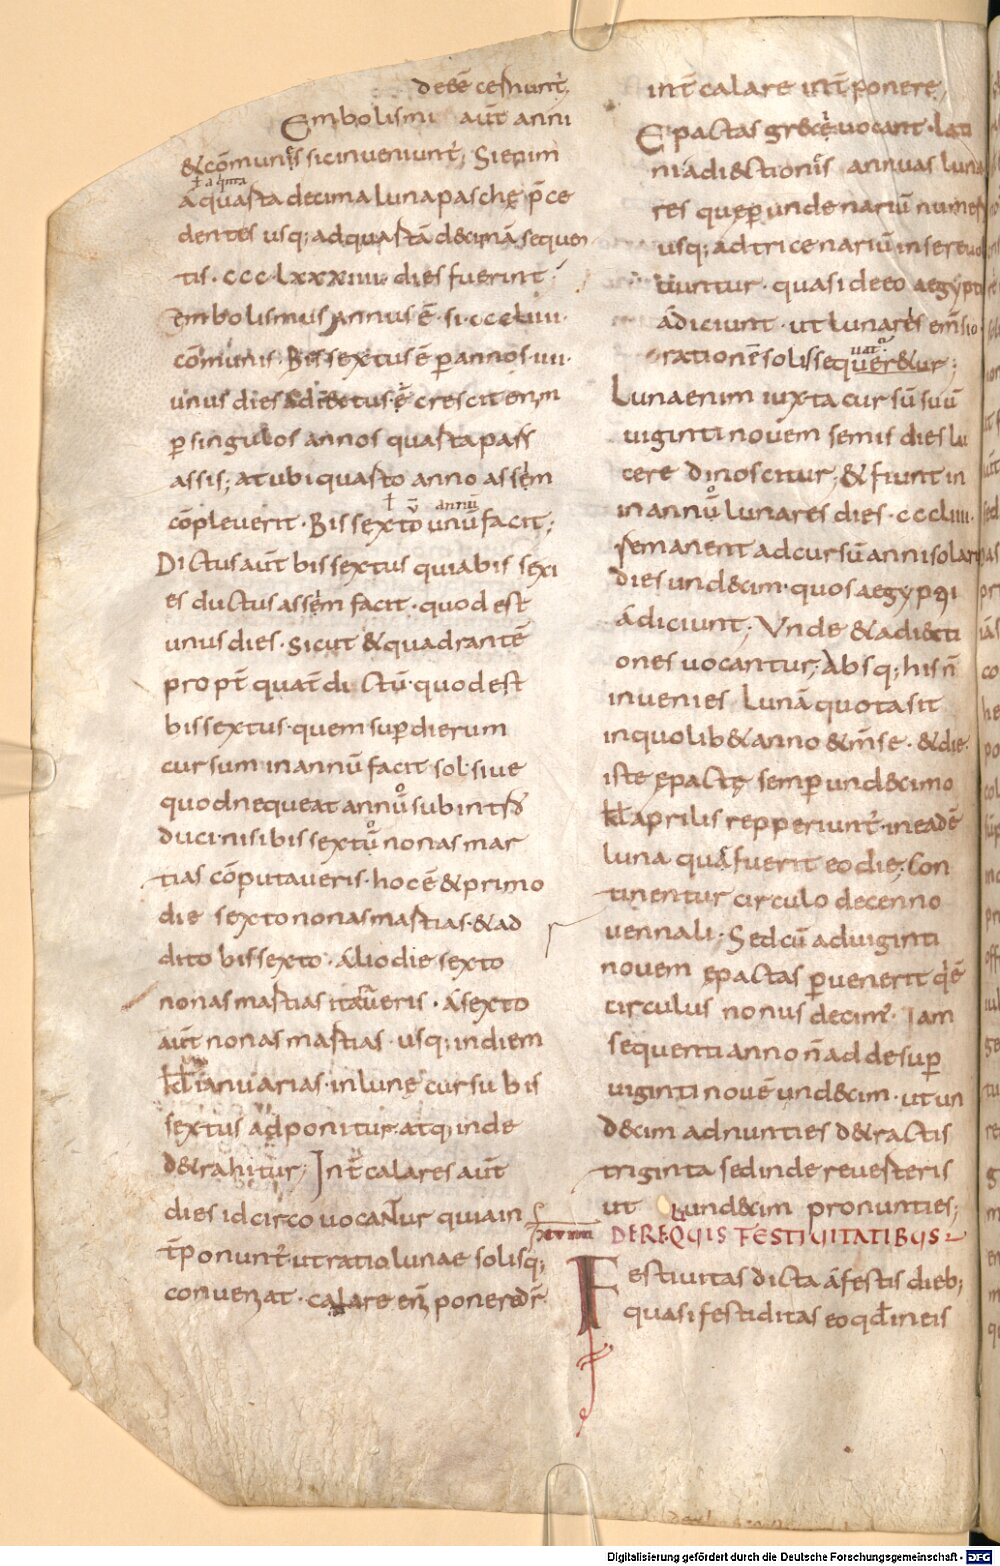 deēē cernunt᷑.
Embolismi aūt anni
&cōmunes sic inveniunt᷑; Si enim
ł a q̄nta
áquarta decima luna paschę p̄ce
dentes usq; adquartā d&cimā sequen
tis · ccclxxxiiii · dies fuerint ·
embolismus annus ē · si · cccliiii ·
cōmunis · Bissextus ē p annos · iiii ·
unus dies adi&ctus ē crescit enim
p singulos annos quarta pars
assis; at ubi quarto anno assem
ł v̄ annū
cōpleverit · Bissexto unū facit;
Dictus aūt bissextus quia bis sexi
es ductus assem facit · quod est
unus dies · sicut & quadrantē
propt̄ quat̄ dictū · quod est
bissextus · quem sup dierum
cursum in annū facit sol · sive
quod nequeat annū subintro
duci · nisi bissextū nonas mar
tias cōputaveris · hoc ē & primo
die sexto nonas martias · & ad
dito bissexto · álio die sexto
nonas martias itaveris · á sexto
aūt nonas martias · usq; in diem
kł ianuarias · in lunę cursu bis
sextus adponitur · atq; inde
d&rahitur; Int̄calares aūt
dies idcirco vocantur quia in
t̄ponunt᷑ · ut ratio lunae solisq;
conveniat · calare enī ponere dr̄ ·
int̄calare int̄ponere
Epactas gr&ce vocant · lati
ni adi&ctiones annuas luna
res quę p undenariū numerū
usq; ad tricenariū in se revol
vuntur · quas ideo aegyptii
ádiciunt · ut lunares em̄sio
uat᷑
rationē solis sequer&ur;
Luna enim iuxta cursū suū
viginti novem semis dies lu
cere dinoscitur; & fiunt in
in annū lunares dies · cccliiii ·
remanent ad cursū anni solaris
dies und&cim · quos aegyptii
ádiciunt; Vnde & adi&cti
ones vocantur; Absq; his n̄
invenies lunā quota sit
in quolib& anno & m̄se · & die
iste epactę semp und&cimo
kł aprilis repperiunt᷑ · in eadē
luna quā fuerit eo die; Con
tinentur circulo decenno
vennali · Sed cū ad viginti
novem epactas pervenerit q̄ ē
circulus nonus decim᷒ · Iam
sequenti anno n̄ ad de sup
viginti novē und&cim · ut un
d&cim adnunties d&ractis
triginta sed inde reverteris
ut und&cim pronunties;
xviiii
DE REQUIS FESTIUITATIBUS
Festivitas dicta á festis dieb;
quasi festiditas eo qđ in eis
Digitalisierung gefördert durch die Deutsche Forschungsgemeinschaft - DFG